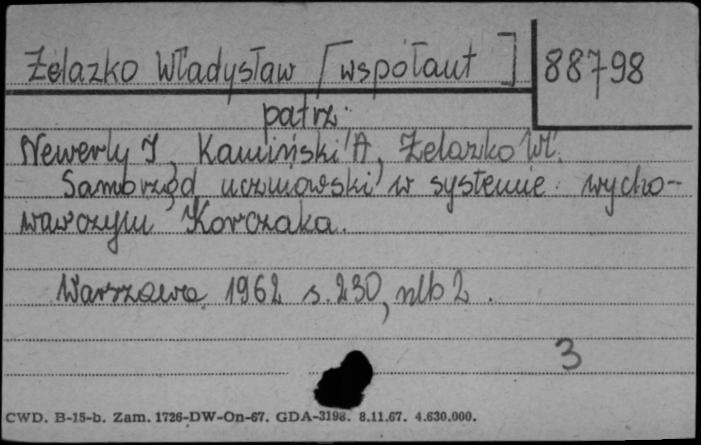 Żelazko Władysław [współaut] 88798
patrz:
Newerly I, Kamiński A, Żelazko Wł.
Samorząd uczniowski w systemie wycho-
wawczym Korczaka.
Warszawa 1962 s. 230, nlb 2.
3
CWD. B-15-b. Zam. 1726-DW-On-67. GDA-3198. 8.11.67. 4.630.000.